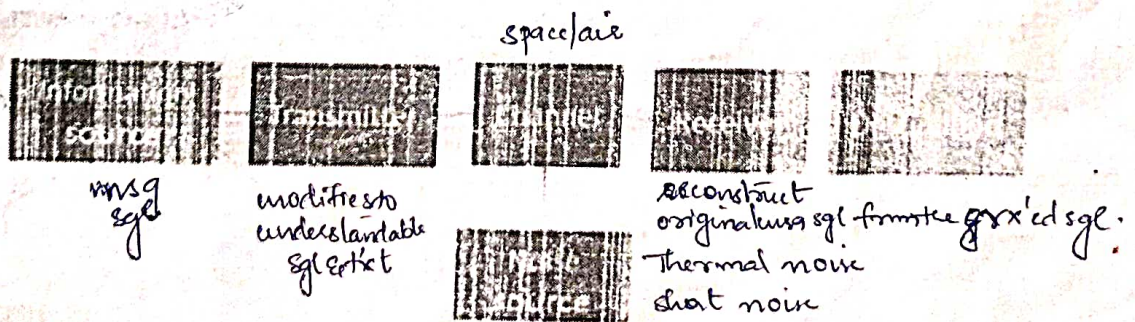 space/air
Information
source
Transmitter
Channel
Receiver
msg
sgl
modifies to
understandable
sgl & txt
reconstruct
original msg sgl from the rx'ed sgl.
Noise
source
Thermal noise
shot noise